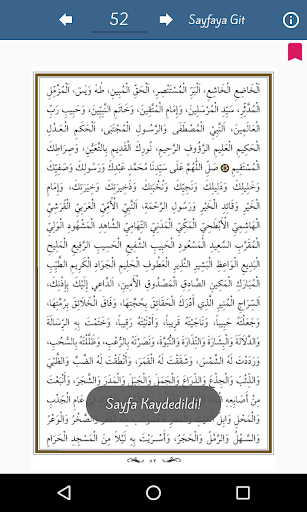 52
Sayfaya Git
اَلْخَاضِعِ الْخَاشِعِ، اَلْبَرِّ الْمُسْتَنْصِرِ، اَلْحَقِّ الْمُبِينِ، طٰهٰ وَيٰسۤ، اَلْمُزَّمِّلِ
الْمُدَّثِّرِ، سَيِّدِ الْمُرْسَلِينَ، وَإِمَامِ الْمُتَّقِينَ، وَخَاتَمِ النَّبِيِّينَ، وَحَبِيبِ رَبِّ
الْعَالَمِينَ، اَلنَّبِيِّ الْمُصْطَفَى وَالرَّسُولِ الْمُجْتَبَى، اَلْحَكَمِ الْعَدْلِ
الْحَكِيمِ الْعَلِيمِ الرَّؤُوفِ الرَّحِيمِ، نُورِكَ الْقَدِيمِ بِالتَّعَيُّنِ، وَصِرَاطِكَ
الْمُسْتَقِيمِ صَلِّ اللّٰهُمَّ عَلَى سَيِّدِنَا مُحَمَّدٍ عَبْدِكَ وَرَسُولِكَ وَصَفِيِّكَ
وَخَلِيلِكَ وَدَلِيلِكَ وَنَجِيِّكَ وَنُخْبَتِكَ وَذَخِيرَتِكَ وَخِيَرَتِكَ، وَإِمَامِ
الْخَيْرِ وَقَائِدِ الْخَيْرِ وَرَسُولِ الرَّحْمَةِ، اَلنَّبِيِّ الْأُمِّيِّ الْعَرَبِيِّ الْقُرَشِيِّ
الْهَاشِمِيِّ الْأَبْطَحِيِّ الْمَكِّيِّ الْمَدَنِيِّ التِّهَامِيِّ الشَّاهِدِ الْمَشْهُودِ الْوَلِيِّ
الْمُقَرَّبِ السَّعِيدِ الْمَسْعُودِ الْحَبِيبِ الشَّفِيعِ الْحَسِيبِ الرَّفِيعِ الْمَلِيحِ
الْبَدِيعِ الْوَاعِظِ الْبَشِيرِ النَّذِيرِ الْعَطُوفِ الْحَلِيمِ الْجَوَادِ الْكَرِيمِ الطَّيِّبِ
الْمُبَارَكِ الْمَكِينِ الصَّادِقِ الْمَصْدُوقِ الْأَمِينِ، اَلدَّاعِي إِلَيْكَ بِإِذْنِكَ،
السِّرَاجِ الْمُنِيرِ الَّذِي أَدْرَكَ الْحَقَائِقَ بِحُجَّتِهَا، وَفَاقَ الْخَلَائِقَ بِرُمَّتِهَا،
وَجَعَلْتَهُ حَبِيباً، وَنَاجَيْتَهُ قَرِيباً، وَأَدْنَيْتَهُ رَقِيباً، وَخَتَمْتَ بِهِ الرِّسَالَةَ
وَالدَّلَالَةَ وَالْبَشَارَةَ وَالنِّذَارَةَ وَالنُّبُوَّةَ، وَنَصَرْتَهُ بِالرُّعْبِ، وَظَلَّلْتَهُ بِالسُّحُبِ،
وَرَدَدْتَ لَهُ الشَّمْسَ، وَشَقَقْتَ لَهُ الْقَمَرَ، وَأَنْطَقْتَ لَهُ الضَّبَّ وَالظَّبْيَ
وَالذِّئْبَ وَالْجِذْعَ وَالذِّرَاعَ وَالْجَمَلَ وَالْجَبَلَ وَالْمَدَرَ وَالشَّجَرَ، وَأَنْبَعْتَ
مِنْ أَصَابِعِهِ
فِي عَامِ الْجَدْبِ
وَالْمَحْلِ وَابِلَ
وَالصَّخْرُ وَالْوَعْرُ
وَالسَّهْلُ وَالرَّمْلُ وَالْحَجَرُ، وَأَسْرَيْتَ بِهِ لَيْلاً مِنَ الْمَسْجِدِ الْحَرَامِ
Sayfa Kaydedildi!
٥٢